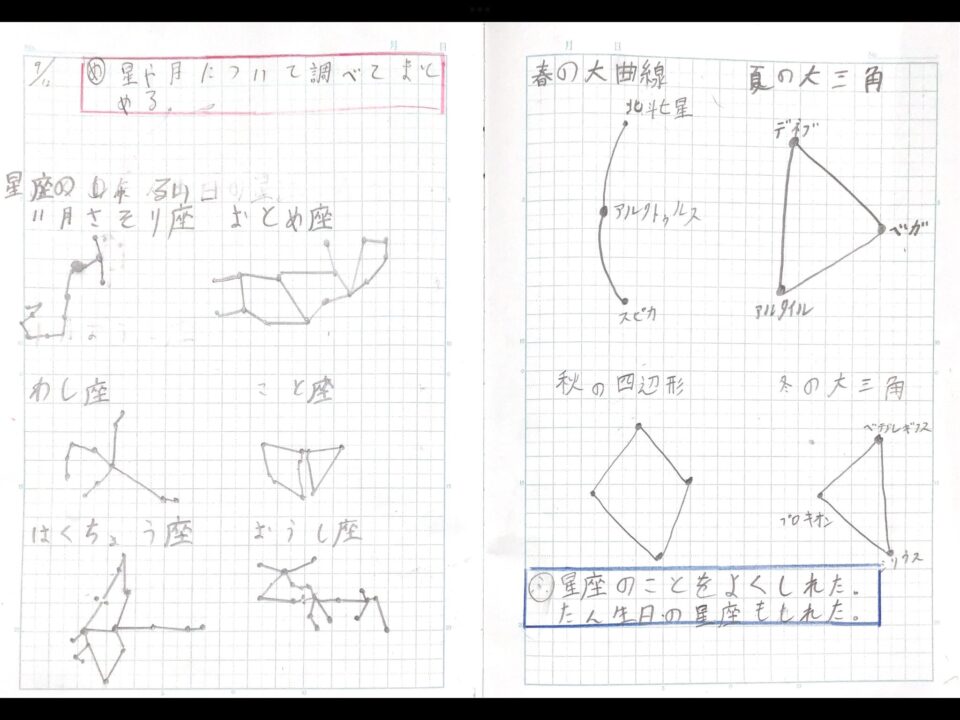 9/12
め 星や月について調べてまと
める。
星座の
11月さそり座 おとめ座
わし座 こと座
はくちょう座 おうし座
月 日
春の大曲線 夏の大三角
北斗七星
アルクトゥルス
スピカ
デネブ
ベガ
アルタイル
秋の四辺形 冬の大三角
ベテルギウス
プロキオン
シリウス
星座のことをよくしれた。
たん生日の星座もしれた。